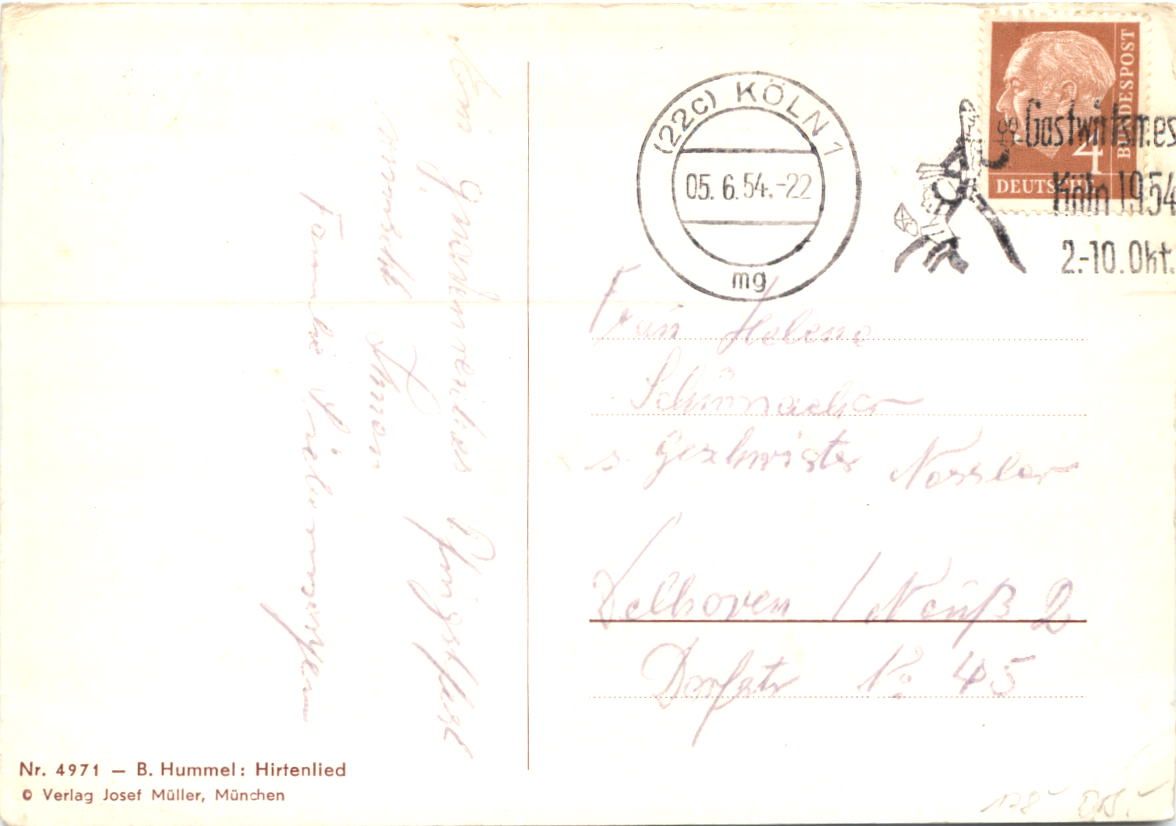 Ein gnadenreiches Pfingstfest
wünscht Ihnen
Familie
(22c) KÖLN 1
05.6.54.-22
mg
BUNDESPOST
4
DEUTSCHE
Gastwirtsmes
Köln 1954
2.-10.Okt.
Frau Helene
Schumacher
Geschwister Nessler
Delhoven / Neuß 2
Dorfstr No 45
Nr. 4971 — B. Hummel: Hirtenlied
© Verlag Josef Müller, München